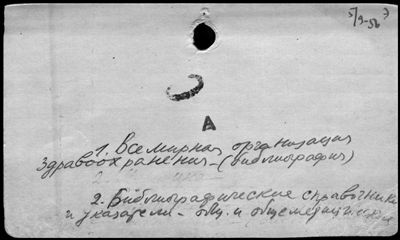 5/9-56 Э
А
1. Всемирная организация
здравоохранения - (библиография)
2. Библиографические справочники
и указатели - общ. и